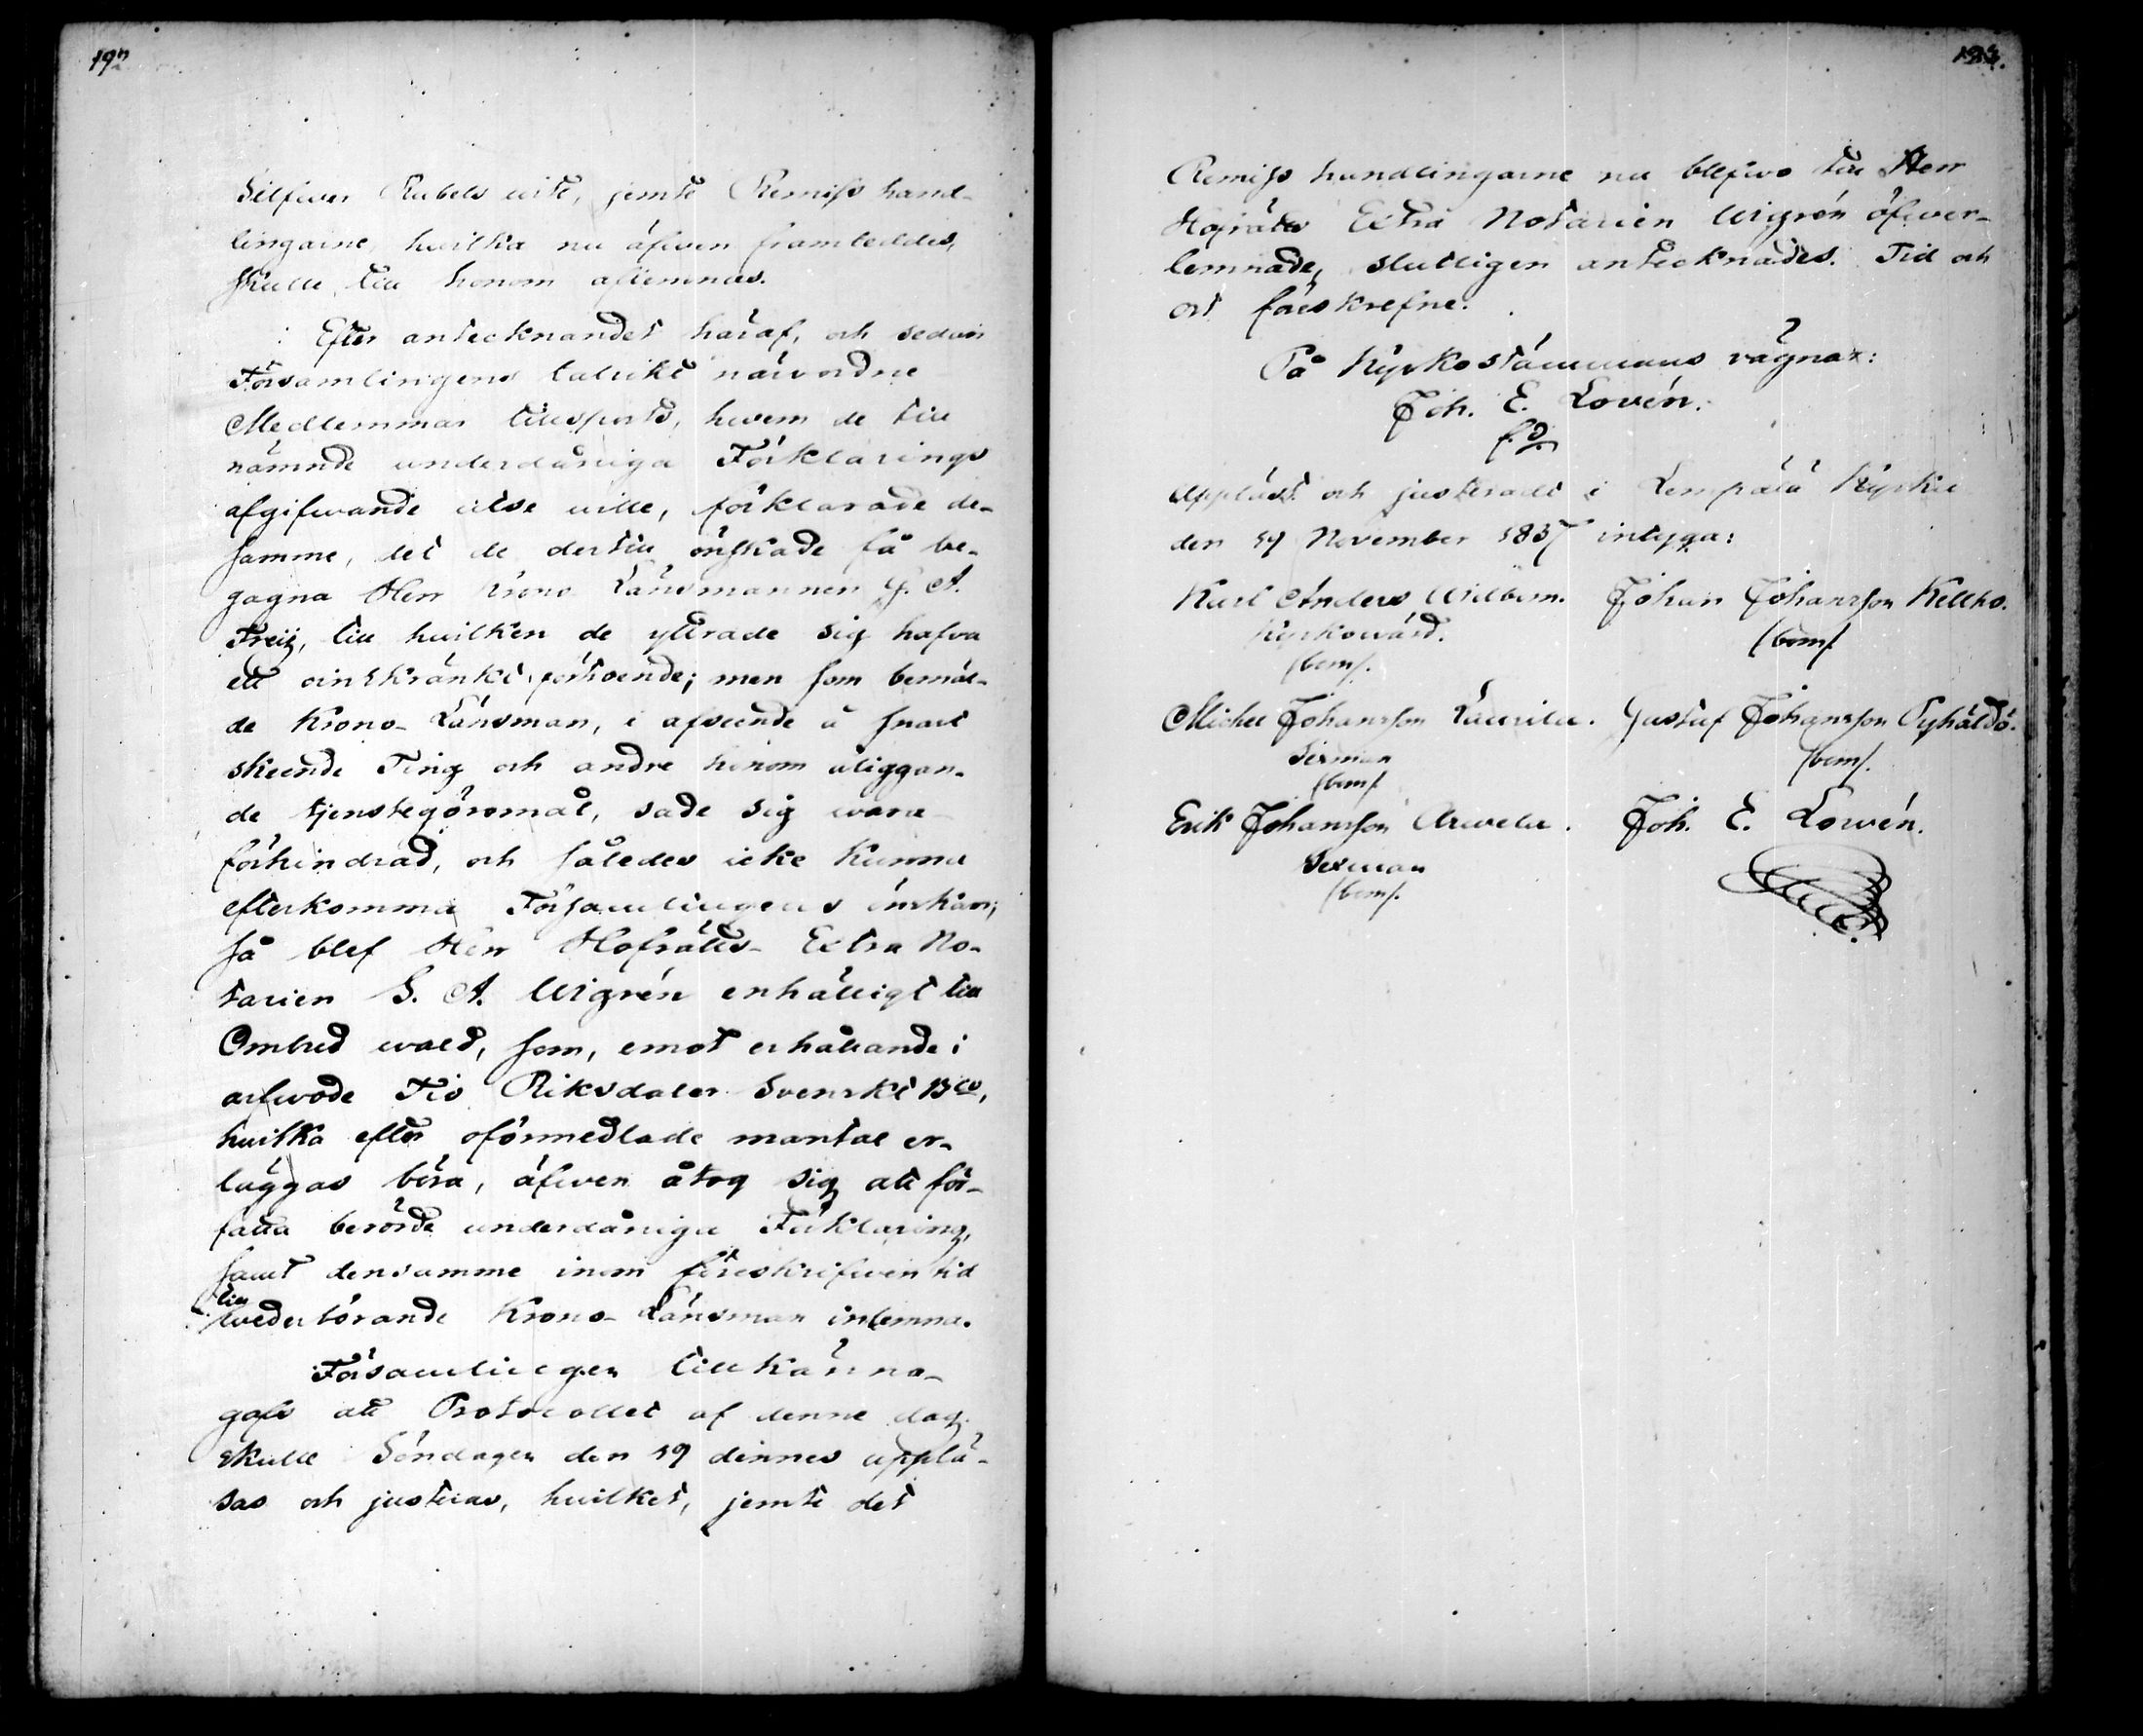 192
Silfwer Rubels wite, jemte Remiss hand-
lingarne, hwilka nu äfwen framteddes,
skulle till honom aflemnas.
Efter antecknandet häraf, och sedan
Församlingens talrikt närvordne
Medlemmar tillsports, hwem de till
nämnde underdåniga Förklarings
afgifwande utse wille, förklarade de-
samme, det de dertill önskade få be-
gagna Herr Krono Länsmannen G. A.
Freij, till hwilken de yttrade sig hafva
ett oinskränkt förtroende; men som bemäl-
de Krono-Länsman, i afseende å snart
skeende Ting och andre honom åliggan-
de tjenstegöromål, sade sig wara
förhindrad, och således icke kunna
efterkomma Församlingens önskan;
så blef Herr Hofrätts-Extra No-
tarien S. A. Wigrén enhälligt till
Ombud wald, som, emot erhållande i
arfwode Tio Riksdaler Svenskt Bco,
hwilka efter oförmedlade mantal er-
läggas böra, äfwen åtog sig att för-
fatta berörde underdåniga Förklaring,
samt densamme inom föreskrifwen tid
till
wederbörande Krono-Länsman inlemna.
Församlingen tillkänna-
gafs att Protocollet af denne dag
skulle Söndagen den 19 dennes upplä-
sas och justeras, hwilket, jemte det
193.
Remiss handlingarne nu blefwo till Herr
Hofrätts Extra Notarien Wigrén öfwer-
lemnade, slutligen antecknades. Tid och
ort föreskrefne.
På Kyrkostämmans vägnar:
Joh. E. Lovén.
Uppläst och justeradt i Lempälä Kyrka
den 19 November 1837 intyga:
Karl Anders Willbom. Johan Johansson Kellho.
Kyrkowärd. (bom).
(bom).
Michel Johansson Laurila. Gustaf Johansson Pyhäldö.
Sexman (bom).
(bom).
Erik Johansson Arwela. Joh. E. Lovén.
Sexman
(bom).